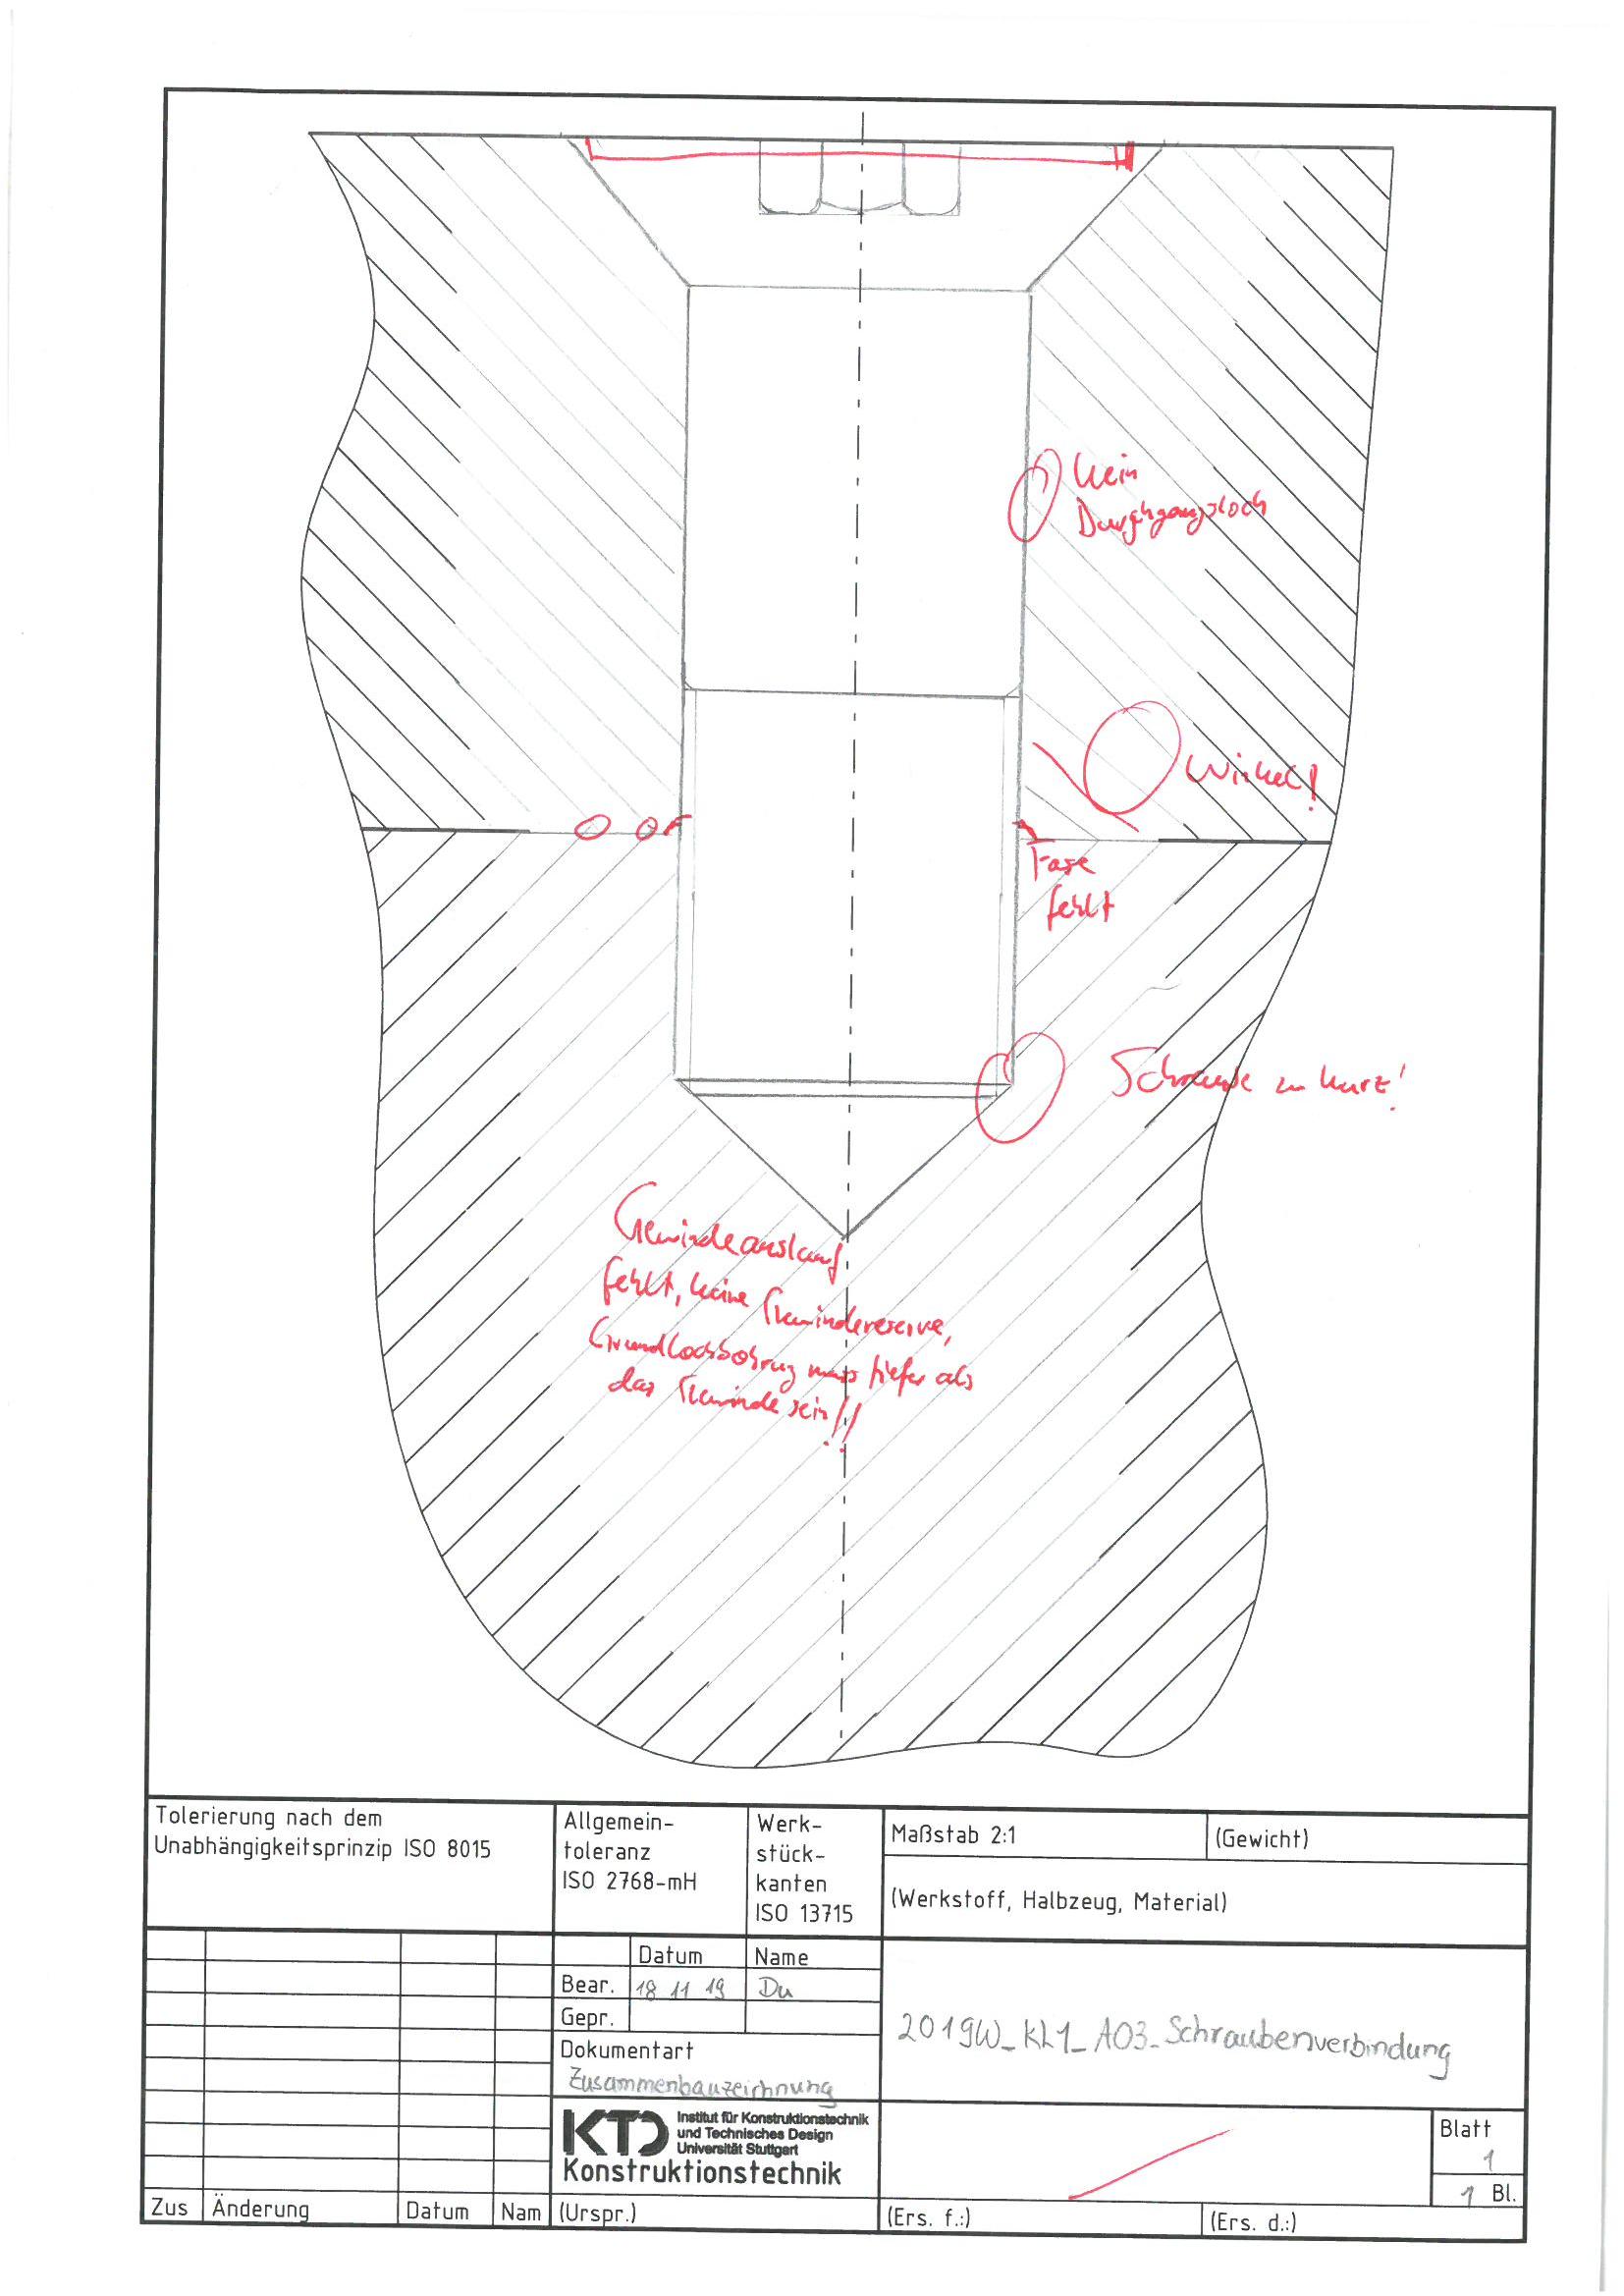 kein
Durchgangsloch
Winkel!
Fase
fehlt
Schraube zu kurz!
Gewindeauslauf
fehlt, keine Gewindereserve,
Grundlochbohrung muss tiefer als
das Gewinde sein!!
Tolerierung nach dem
Unabhängigkeitsprinzip ISO 8015
Allgemein-
toleranz
ISO 2768-mH
Werk-
stück-
kanten
ISO 13715
Maßstab 2:1
(Gewicht)
(Werkstoff, Halbzeug, Material)
Datum
Name
Bear.
18 11 19
Du
Gepr.
Dokumentart
Zusammenbauzeichnung
2019W_KL1_A03_Schraubenverbindung
KTD
Institut für Konstruktionstechnik
und Technisches Design
Universität Stuttgart
Konstruktionstechnik
Blatt
1
1 Bl.
Zus
Änderung
Datum
Nam
(Urspr.)
(Ers. f.:)
(Ers. d.:)